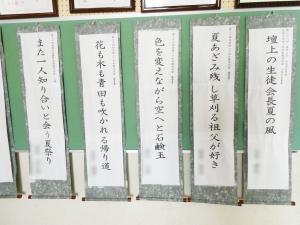 壇上の生徒会長夏の風
夏あざみ残し草刈る祖父が好き
色を変えながら空へと石鹸玉
花も木も青田も吹かれる帰り道
また一人知り合いと会う夏祭り